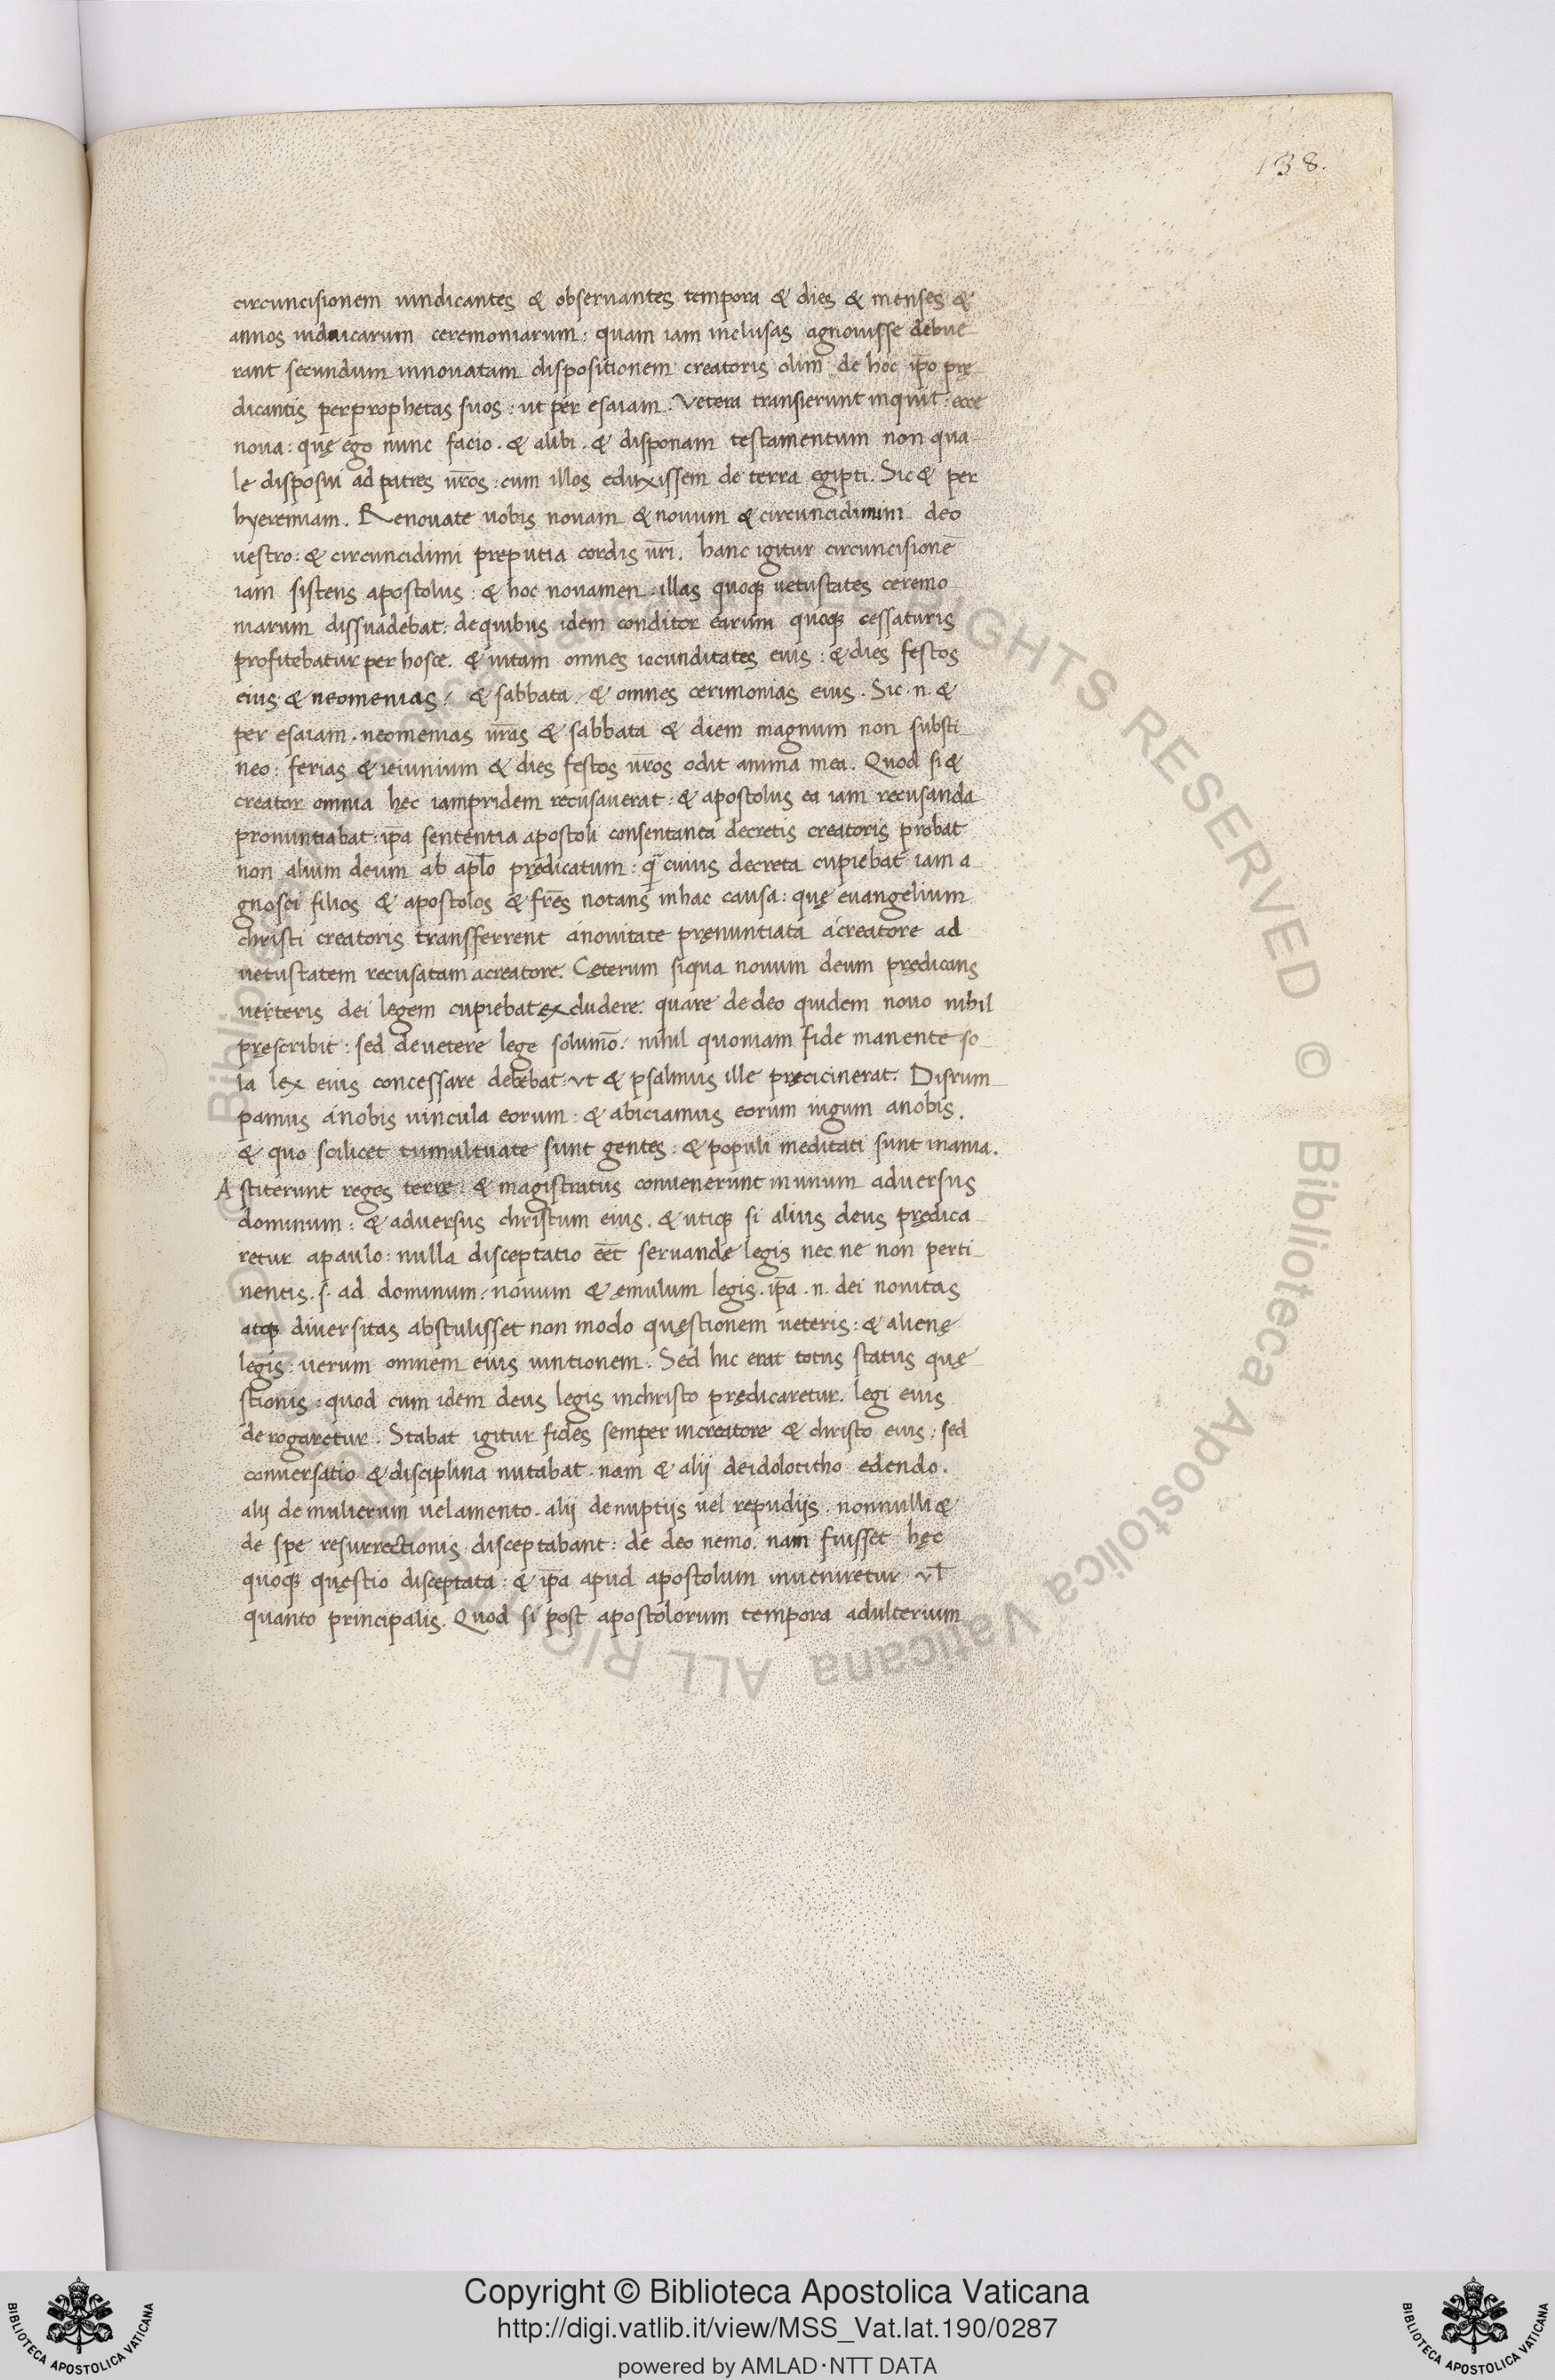 138.
circuncisionem uindicantes & obseruantes tempora & dies & menses &
annos iudaicarum ceremoniarum: quam iam inclusas agnouisse debue
rant secundum innouatam dispositionem creatoris olim de hoc ip̄o prę
dicantis perprophetas suos: ut per esaiam. Vetera transierunt inquit: ecce
noua: quę ego nunc facio. & alibi. & disponam testamentum non qua
le disposui ad patres ur̄os: cum illos eduxissem de terra egipti. Sic & per
hyeremiam. Renouate uobis nouam & nouum & circuncidimini deo
uestro: & circuncidimi preputia cordis ur̄i. hanc igitur circuncisionē
iam sistens apostolus: & hoc nouamen: illas quoq; uetustates ceremo
niarum dissuadebat: dequibus idem conditor earum quoq; cessaturis
profitebatur per hosce. & uitam omnes iocunditates eius: & dies festos
eius & neomenias: & sabbata: & omnes cerimonias eius. Sic .n. &
per esaiam. neomenias ur̄as & sabbata & diem magnum non substi
neo: ferias & ieiunium & dies festos ur̄os odit anima mea. Quod si &
creator omnia hęc iampridem recusauerat: & apostolus ea iam recusanda
pronuntiabat: ip̄a sententia apostoli consentanea decretis creatoris probat
non alium deum ab apl̄o prędicatum: q̄ cuius decreta cupiebat iam a
gnosci filios & apostolos & fr̄es notans inhac causa: quę euangelium
christi creatoris transferrent ánouitate pręnuntiata ácreatore ad
uetustatem recusatam acreatore. Cęterum siqua nouum deum prędicans
uerteris dei legem cupiebat excludere. quare dedeo quidem nouo nihil
pręscribit: sed deuetere lege solum̄o. nihil quoniam fide manente so
la lex eius concessare debebat: ut & psalmus ille pręcicinerat. Disrum
pamus ánobis uincula eorum: & abiciamus eorum iugum anobis.
& quo scilicet tumultuate sunt gentes: & populi meditati sunt inania.
Astiterunt reges terrę: & magistratus conuenerunt inunum aduersus
dominum: & aduersus christum eius. & utiq; si alius deus prędica
retur apaulo: nulla disceptatio eēt seruandę legis nec ne non perti
nentis .s. ad dominum: nouum & ęmulum legis. ip̄a .n. dei nouitas
atq; diuersitas abstulisset non modo quęstionem ueteris: & alienę
legis: uerum omnem eius mntionem. Sed hic erat totus status quę
stionis: quod cum idem deus legis inchristo prędicaretur. legi eius
derogaretur. Stabat igitur fides semper increatore & christo eius: sed
conuersatio & disciplina nutabat. nam & alij deidolotitho edendo.
alij de mulierum uelamento. alij denuptijs uel repudijs. nonnulli &
de spe resurrectionis disceptabant: de deo nemo. nam fuisset hęc
quoq; quęstio disceptata: & ip̄a apud apostolum inueniretur. ul̄
quanto principalis. Quod si post apostolorum tempora adulterium
© Biblioteca Apostolica Vaticana ALL RIGHTS RESERVED
Copyright © Biblioteca Apostolica Vaticana
http://digi.vatlib.it/view/MSS_Vat.lat.190/0287
powered by AMLAD·NTT DATA
BIBLIOTECA APOSTOLICA VATICANA
BIBLIOTECA APOSTOLICA VATICANA